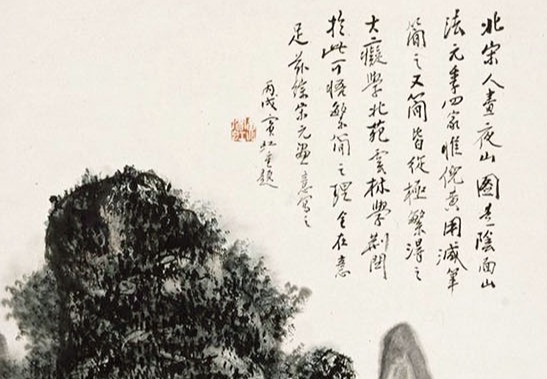 北宋人畫夜山圖是陰面山
法元季四家惟倪黃用減筆
簡之又簡皆從極繁得之
大癡學北苑雲林學荊關
於此可悟繁簡之理全在意
足茲繪宋元畫意寫之
丙戌賓虹重題